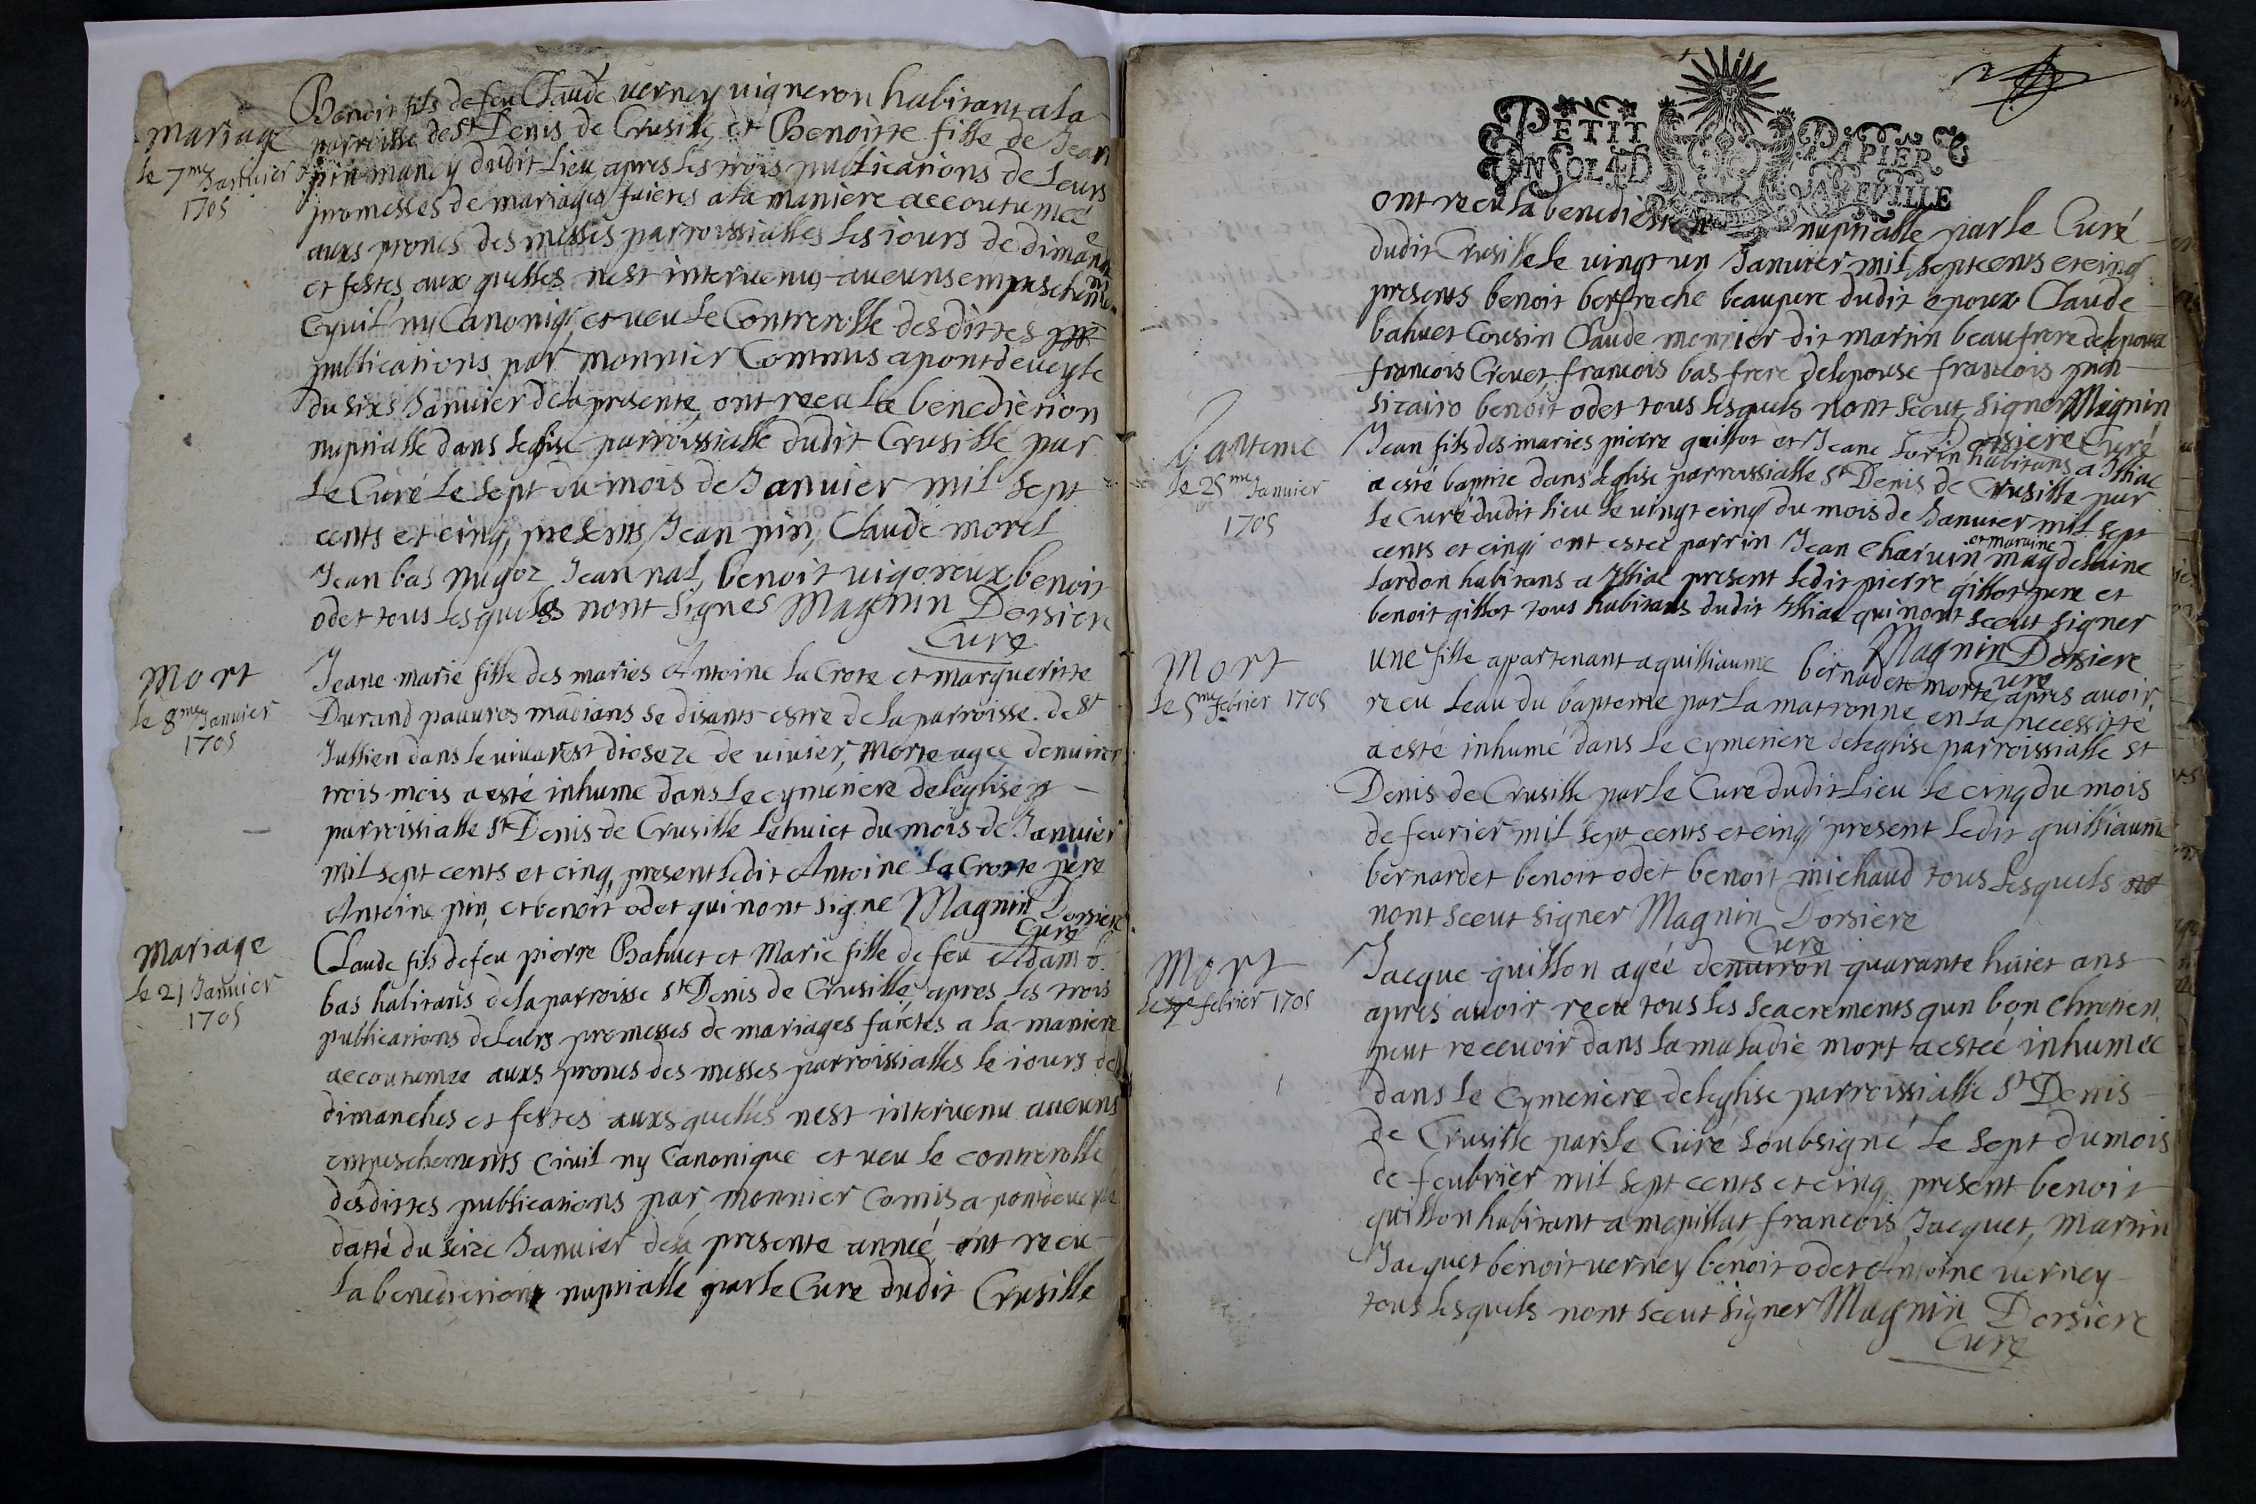 mariage
le 7me Januier
1705
Benoit fils de feu Claude verney uigneron habitant a la
parroisse de St Denis de Crusille et Benoitte fille de Jean
pin mancy dudit lieu apres les trois publications de leurs
promesses de mariages faictes a la maniere accoutumeé
auxs prones des messes parroissialles les iours de dimanche
et festes aux quelles nest interuenus aucuns empeschement
Cyuil ny Canoniq, et ueu le Controlle des dittes
publications par monnier Commis a pontdeueyle
du sixs Januier de la presente, ont receu la benediction
nuptialle dans leglise parroissialle dudit Crusille par
Le Curé Le sept du mois de Januier mil sept
cents et cinq, presents, Jean pin, Claude morel
Jean bas nugoz Jean nal, benoit uigoreux, benoit
odet tous lesquels nont signes Magnin Dorsiere
Curé
Mort
le 8me Januier
1705
Jeane marie fille des maries Antoine la Crote et margueritte
Durand pauures madians se disants estre de la parroisse de St
Jullien dans le uiuarest dioseze de uiuier, morte agee denuiron
trois mois a esté inhume dans le cymetiere deleglise
parroissialle St Denis de Crusille le huict du mois de Januier
mil sept cents et cinq, present ledit Antoine la Crotte pere
Antoine pin, et benoit odet qui nont signe Magnin Dorsiere
Curé
Mariage
le 21 Januier
1705
Claude fils de feu pierre Bahuet et Marie fille de feu Adam b.
bas habitans de la parroisse St Denis de Crusille, apres les trois
publications de leurs promesses de mariages faictes a la maniere
accoutumee auxs prones des messes parroissialles le iours de
dimanches et festes auxsquelles nest interuenu aucuns
empeschements Ciuil ny Canonique et ueu le controlle
desdittes publications par monnier Comis a pontdeueyle
datté du seize Januier de la presente anneé ont receu
la benediction nuptialle par le Cure dudit Crusille
2
PETIT PAPIER
UN SOL 4 D LA FEUILLE
ont receu la benediction nuptialle par le Curé
dudit Crusille le uingt un Januier mil septcents et cinq
presents benoit berfreche beaupere dudit epoux Claude
bahuet Cousin Claude monnier dit martin beaufrere delepouse
francois Creuet, francois bas frere delepouse francois pin
benoit odet tous lesquels nont sceut signer Magnin
Dorsiere Curé
Bapteme
le 25me Januier
1705
Jean fils des maries pierre guillot et Jeane Lorin habitans a Illiac
a esté baptize dans leglise parroissialle St Denis de Crusille par
le Curé dudit lieu le uingt cinq du mois de Januier mil sept
cents et cinq, ont esteé parrin Jean Charuin et maraine magdelaine
Lardon habitans a Illiac present ledit pierre gillot pere et
benoit gillot tous habitans dudit Illiac qui nont sceut signer
Magnin Dorsiere
Curé
Mort
le 5me febrier 1705
une fille appartenant a guilliaume bernadet morte apres auoir
receu leau du bapteme par la matronne en la necessitté
a esté inhumé dans le cymetiere deleglise parroissialle St
Denis de Crusille par le Cure dudit lieu le cinq du mois
de feurier mil sept cents et cinq present ledit guilliaume
bernardet benoit odet benoit michaud tous lesquels
nont sceut signer Magnin Dorsiere
Curé
Mort
le 7e febrier 1705
Jacque guillon ageé denuiron quarante huict ans
apres auoir receu tous les seacrements qun bon chretien
peut receuoir dans la maladie mort a esteé inhumeé
dans le cymetiere deleglise parroissialle St Denis
de Crusille par le Curé soubsigné le sept du mois
de feubrier mil sept cents et cinq, present benoit
guillon habitant a mepillat, francois Jacquet, martin
Jacquet benoit uerney benoit odet Antoine uerney
tous lesquels nont sceut signer Magnin Dorsiere
Curé